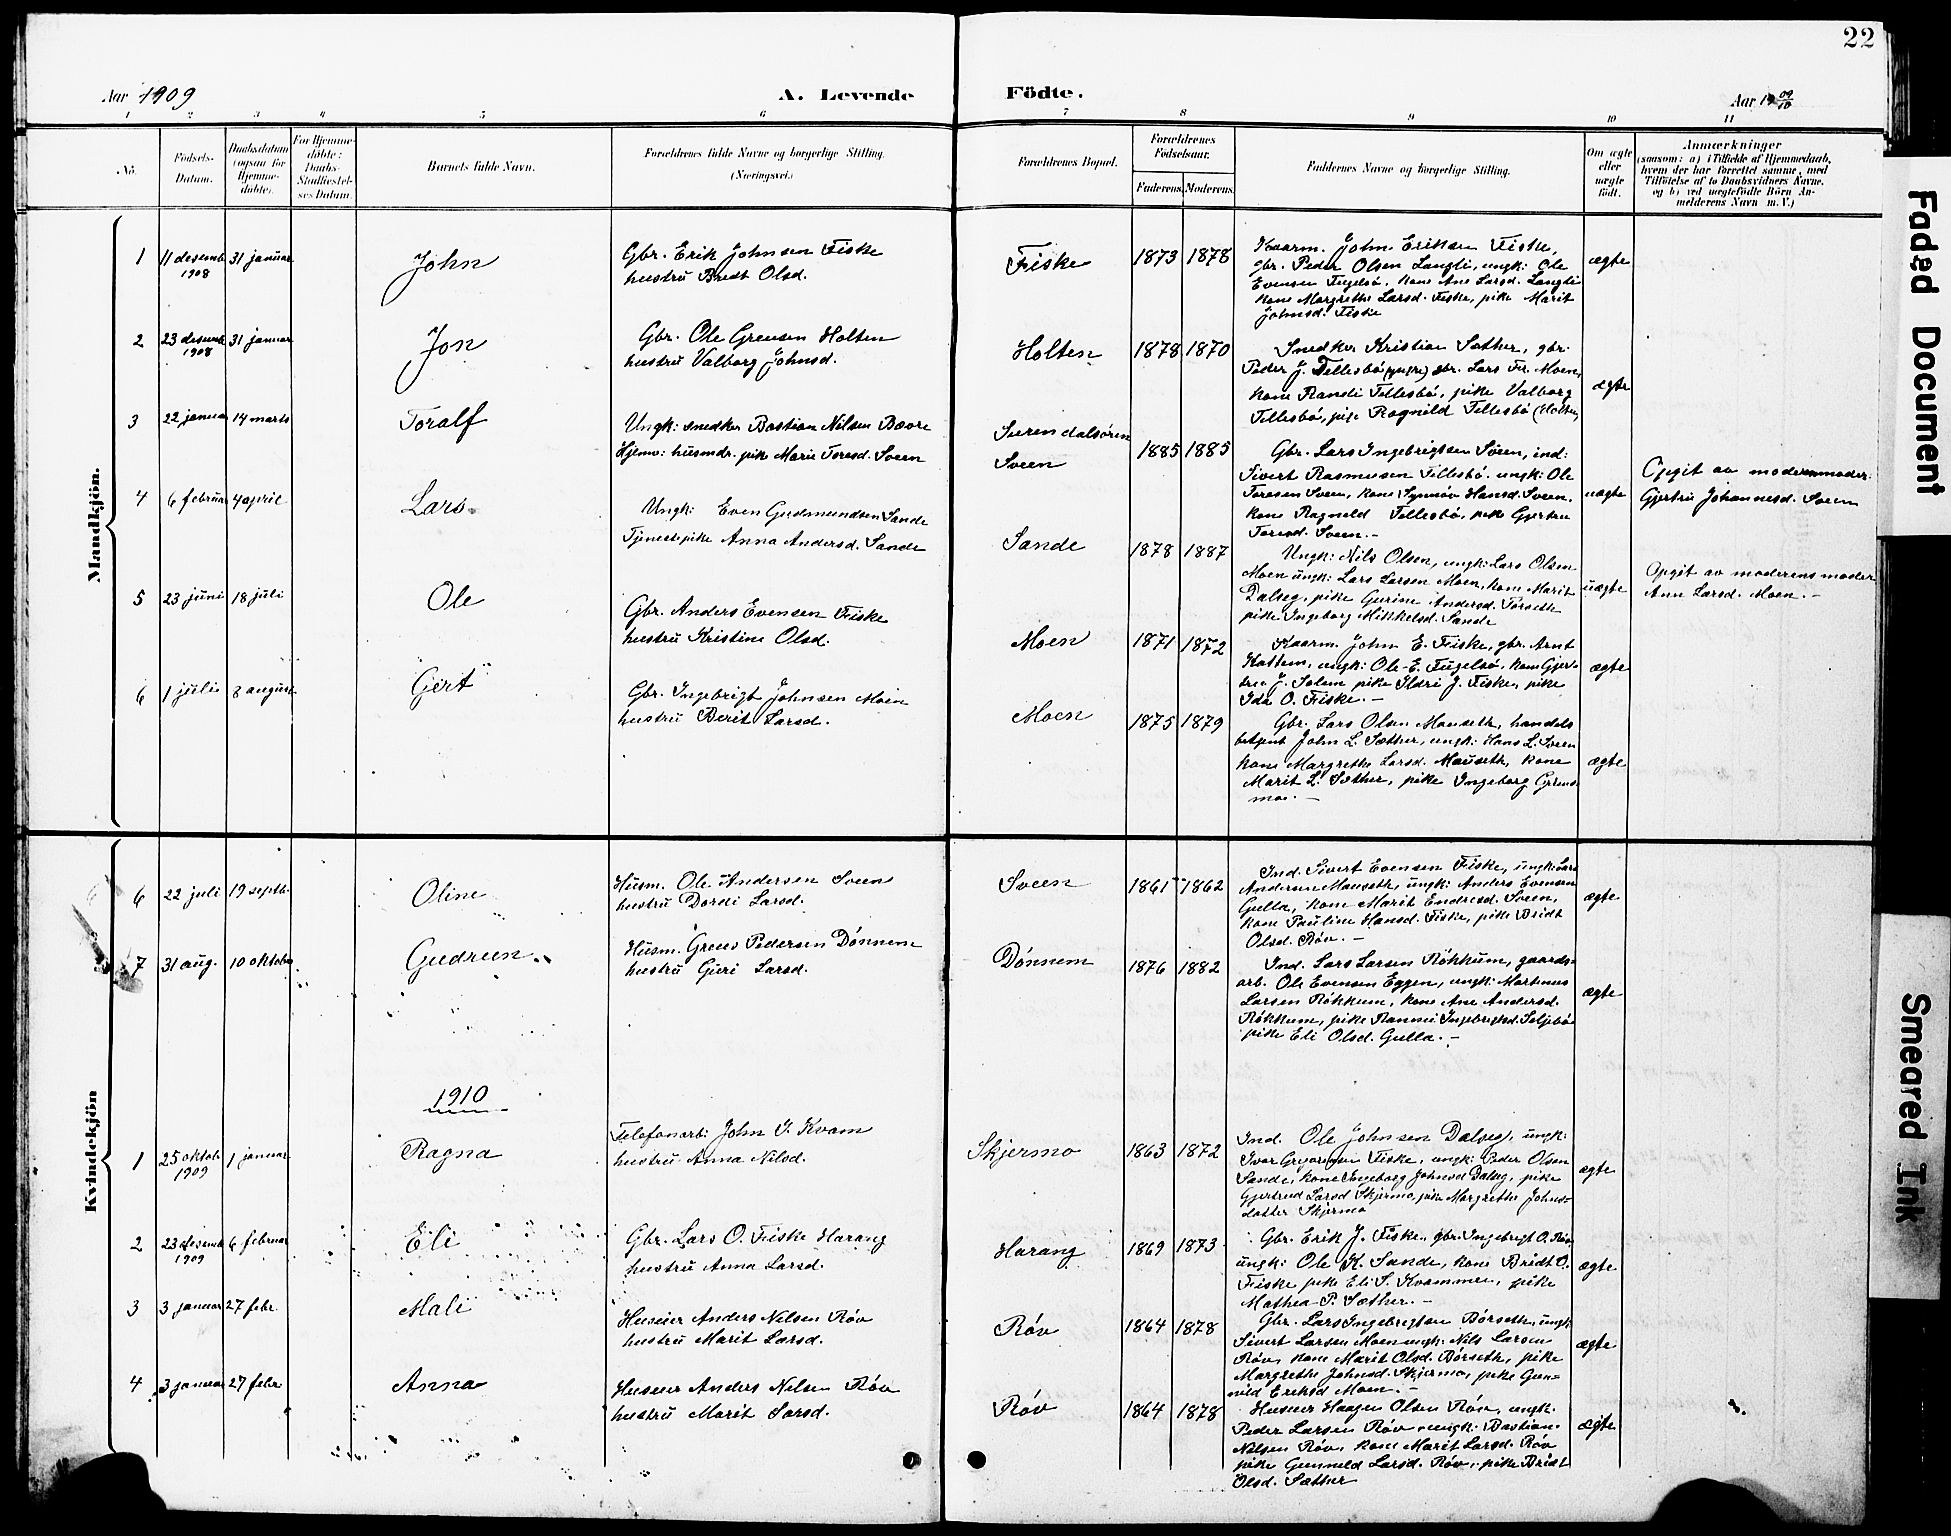 22
Aar 1909
A. Levende
Födte.
Aar 1909/10
1 2 3 4 5 6 7 8 9 10 11
No.
Födsels-
Datum.
Daabsdatum
(ogsaa for
Hjemme-
döbte).
For Hjemme-
döbte:
Daabs-
Stadfæstel-
ses Datum.
Barnets fulde Navn.
Forældrenes fulde Navne og borgerlige Stilling.
(Næringsvei.)
Forældrenes Bopæl.
Forældrenes
Födselsaar.
Faderens. Moderens.
Faddernes Navne og borgerlige Stilling.
Om ægte
eller
uægte
födt.
Anmærkninger
(saasom: a) i Tilfælde af Hjemmedaab,
hvem der har forrettet samme, med
Tilföielse af to Daabsvidners Navne,
og b) ved uægtefödte Börn An-
melderens Navn m. V.)
Mandkjön.
1
11 desemb
1908
31 januar
John
Gbr. Erik Johnsen Fiske
hustru Bredt Olsd.
Fiske
1873 1878
Kaarm. John Eriksen Fiske,
gbr. Peder Olsen Langli, ungk: Ole
Evensen Fugelsö, kone Ane Larsd. Langli
kone Margrethe Larsd. Fiske, pike Marit
Johnsd. Fiske
ægte
2
23 desemb
1908
31 januar
Jon
Gbr. Ole Greusen Holten
hustru Valborg Johnsd.
Holten
1878 1870
Snedker Kristian Sæther, gbr.
Peder J. Tellesbö (yngre) gbr. Lars Fr. Moen,
kone Randi Tellesbö, pike Valborg
Tellesbö, pige Ragnild Tellesbö (Holten)
ægte
3
22 januar
14 marts
Toralf
Ungk: snedker Bastian Nilsen Bævre
Hjemv: husmdr. pike Marie Toresd. Sveen
Surendalsören
Sveen
1885 1885
Gbr. Lars Ingebrigtsen Sveen, ind:
Sivert Rasmussen Tellesbö, ungk: Ole
Toresen Sveen, kone Synnöv Hansd. Sveen,
kone Ragneld Tellesbö, pike Gjertru
Toresd. Sveen.-
uægte
Opgit av moderens moder:
Gjertru Johannesd. Sveen
4
6 februar
4 april
Lars
Ungk: Even Gudmundsen Sande
Tjenestepike Anna Andersd. Sande
Sande
1878 1887
Ungk: Nils Olsen, ungk: Lars Olsen
Moen ungk: Lars Larsen Moen, kone Marit
Dalseg, pike Gurine Andersd. Torseth
pike Ingeborg Mikkelsd. Sande
uægte
Opgit av moderens moder
Ann Larsd. Moen.-
5
23 juni
18 juli
Ole
Gbr. Anders Evensen Fiske
hustru Kristine Olsd.
Moen
1871 1872
Kaarm. John E. Fiske, gbr. Arnt
Kattem, ungk: Ole E. Fugelsö, kone Gjer-
tru J. Solem pike Ildri J. Fiske, pike
Ida O. Fiske.-
ægte
6
1 juli
8 august
Gjert
Gbr. Ingebrigt Johnsen Moen
hustru Berit Larsd.
Moen
1875 1879
Gbr. Lars Olsen Mauseth, handels
betjent John L. Sæther, ungk: Hans L. Sveen
kone Margrethe Larsd. Mauseth, kone
Marit L. Sæther, pike Ingeborg
moe.-
ægte
Kvindekjön
6
22 juli
19 septb.
Oline
Husm. Ole Andersen Sveen
hustru Dordi Larsd.
Sveen
1861 1862
Ind. Sivert Evensen Fiske, ungk: Lars
Andersen Mauseth, ungk: Anders Evensen
Gulla, kone Marit Endresd. Sveen,
kone Pauline Hansd. Fiske, pike Bridt
Olsd. Röv.-
ægte
7
31 aug.
10 oktober
Gudrun
Husm. Greus Pedersen Dönnem
hustru Guri Larsd.
Dönnem
1876 1882
Ind. Lars Larsen Rökkum, gaards-
arb. Ole Evensen Eggen, ungk: Martinus
Larsen Rökkum, kone Ane Andersd.
Rökkum, pike Rannei Ingebrigtsd. Seljebö
pike Eli Olsd. Gulla.-
ægte
1910
1
25 oktob
1909
1 januar
Ragna
Telefonarb: John I. Kvam
hustru Anna Nilsd.
Skjermo
1863 1872
Ind. Ole Johnsen Dalseg, ungk:
Ivar Gregorisen Fiske, ungk: Peder Olsen
Sande, kone Ingeborg Johnsd Dalseg, pike
Gjertrud Larsd Skjermo, pike Margrethe Johns-
datter Skjermo
ægte
2
23 desemb
1909
6 februar
Eli
Gbr. Lars O. Fiske Harang
hustru Anna Larsd.
Harang
1869 1873
Gbr. Erik J. Fiske, gbr. Ingebrigt O. Röv,
ungk: Ole K. Sande, kone Bridt O.
Fiske pike Eli S. Kvammen, pike
Mathea P. Sæther.-
ægte
3
3 januar
27 febr.
Mali
Huseier Anders Nilsen Röv
hustru Marit Larsd.
Röv
1864 1878
Gbr. Lars Ingebrigtsen Börseth, ungk:
Sivert Larsen Moen ungk: Nils Larsen
Röv, kone Marit Olsd. Börseth, pike
Margrethe Johnsd. Skjermo, pike Gun-
nild Eriksd Moen.-
ægte
4
3 januar
27 febr
Anna
Huseier Anders Nilsen Röv
hustru Marit Larsd.
Röv
1864 1878
Huseier Haagen Olsen Röv, ungk:
Peder Larsen Röv, ungk: Bastian
Nilsen Röv, kone Marit Larsd. Röv
pike Gunneld Larsd. Röv, pike Bridt
Olsd. Sæther
ægte
Faded Document
Smeared Ink